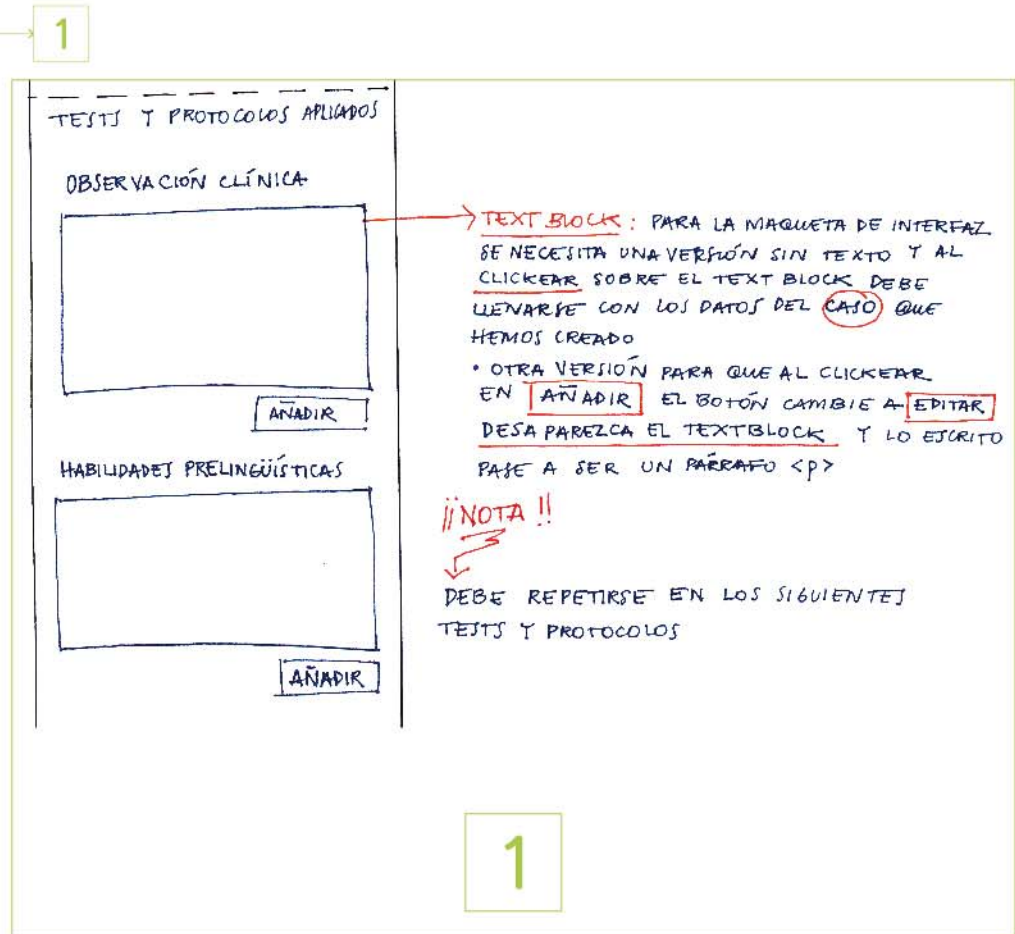 1
TESTS Y PROTOCOLOS APLICADOS
OBSERVACIÓN CLÍNICA
AÑADIR
HABILIDADES PRELINGÜÍSTICAS
AÑADIR
TEXT BLOCK: PARA LA MAQUETA DE INTERFAZ
SE NECESITA UNA VERSIÓN SIN TEXTO Y AL
CLICKEAR SOBRE EL TEXT BLOCK DEBE
LLENARSE CON LOS DATOS DEL CASO QUE
HEMOS CREADO
• OTRA VERSIÓN PARA QUE AL CLICKEAR
EN AÑADIR EL BOTÓN CAMBIE A EDITAR
DESAPAREZCA EL TEXTBLOCK Y LO ESCRITO
PASE A SER UN PÁRRAFO <p>
¡¡NOTA!!
DEBE REPETIRSE EN LOS SIGUIENTES
TESTS Y PROTOCOLOS
1